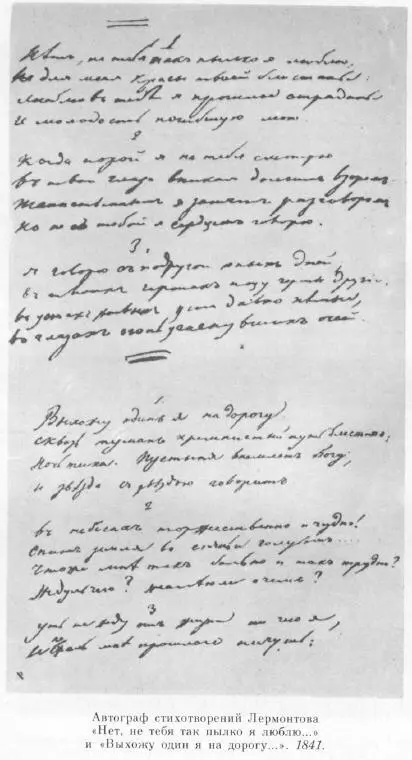 1
Нѣтъ, не тебя такъ пылко я люблю,
Не для меня красы твоей блистанье:
Люблю въ тебѣ я прошлое страданье
И молодость погибшую мою.
2
Когда порой я на тебя смотрю
Въ твои глаза вникая долгимъ взоромъ
Таинственнымъ я занятъ разговоромъ
Но не съ тобой я сердцемъ говорю.
3.
Я говорю съ подругой юныхъ дней,
Въ твоихъ чертахъ ищу черты другія.
Въ устахъ живыхъ уста давно нѣмыя,
Въ глазахъ огонь угаснувшихъ очей.
1
Выхожу одинъ я на дорогу
Сквозь туманъ кремнистый путь блеститъ;
Ночь тиха. Пустыня внемлетъ богу,
И звѣзда съ звѣздою говоритъ
2
Въ небесахъ торжественно и чудно!
Спитъ земля въ сіяньи голубомъ....
Что же мнѣ такъ больно и такъ трудно?
Жду ль чего? жалѣю ли о чемъ?
3
Ужъ не жду отъ жизни ничего я,
И не жаль мнѣ прошлаго ничуть;
Автограф стихотворений Лермонтова
«Нет, не тебя так пылко я люблю...»
и «Выхожу один я на дорогу...». 1841.